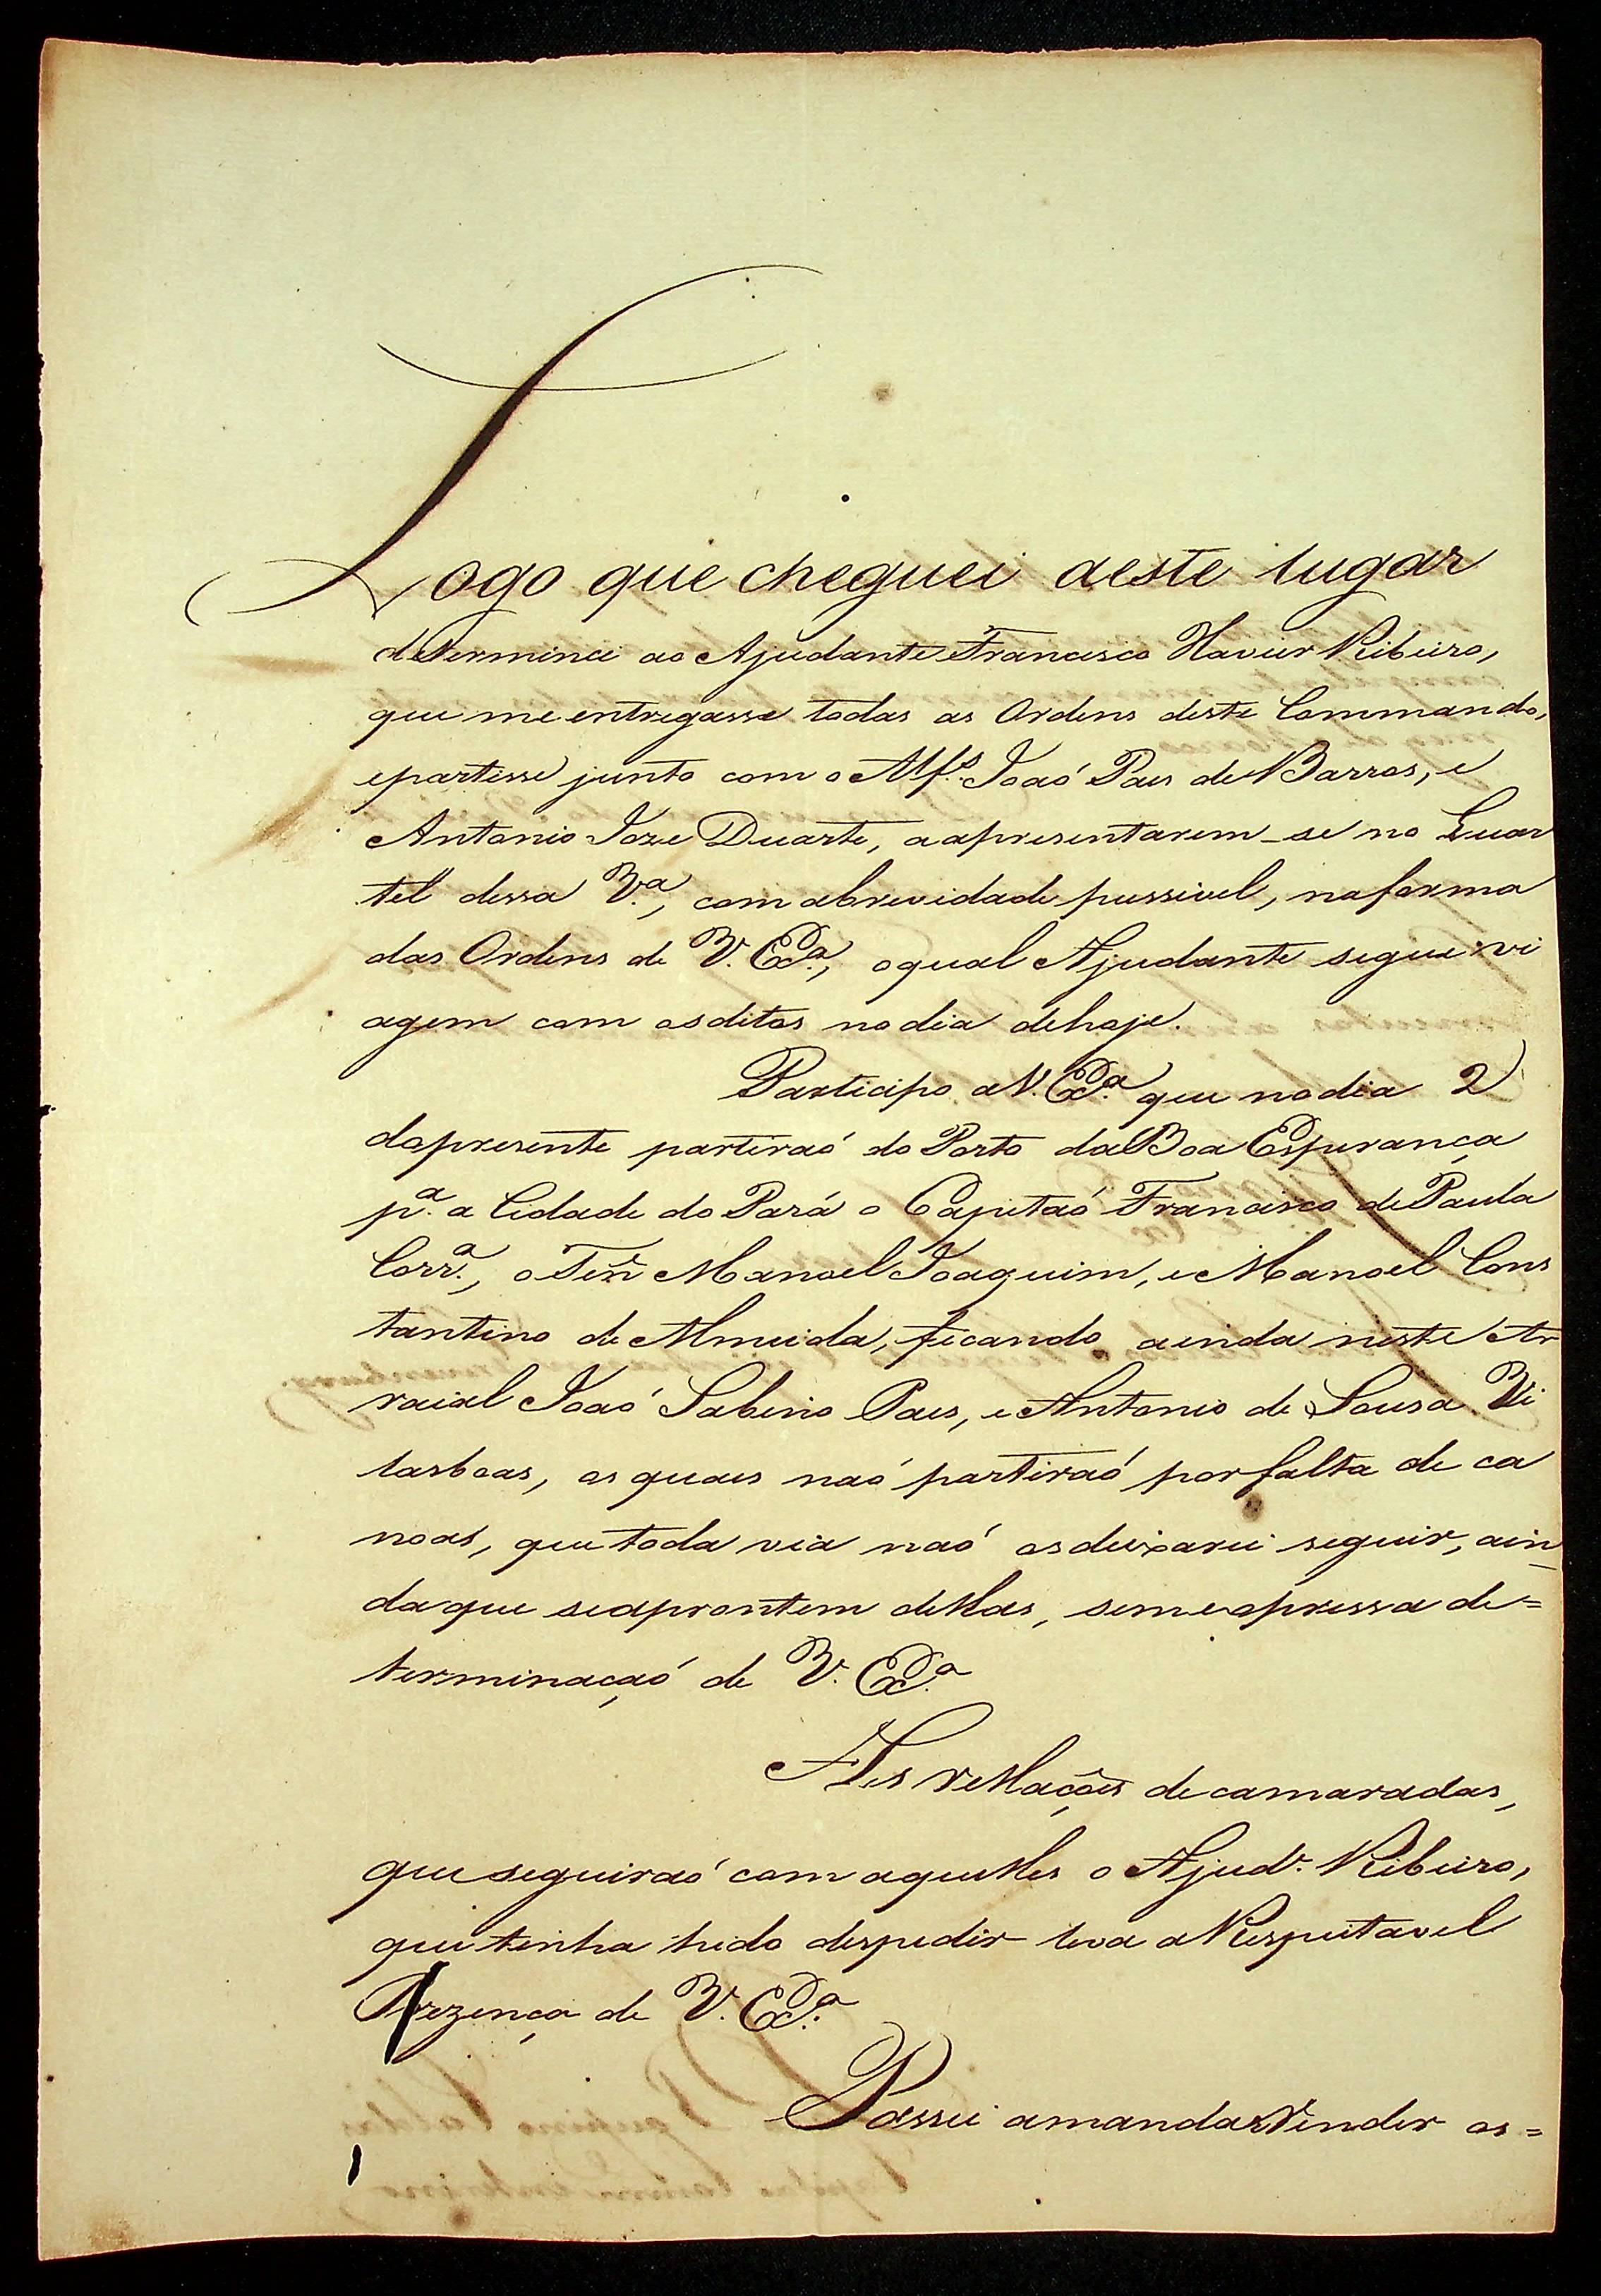 Logo que cheguei aeste lugar
determinei ao Ajudante Francisco Xavier Ribeiro,
que me entregasse todas as Ordens deste Commando,
epartisse junto com o Alf.s Joaó Paes de Barros, e
Antonio Joze Duarte, aapresentarem-se no Quar
tel dessa V.a, com abrevidade pussivel, naforma
das Ordens de V. Ex.a, oqual Ajudante segue vi
agem com osditos nodia dehoje.
Participo aV. Ex.a que nodia 2
dopresente partiraó do Porto daBoa Esperança
p.a a Cidade do Pará o Capitaó Francisco de Paula
Corr.a, o Ten Manoel Joaquim, e Manoel Cons
tantino de Almeida, ficando ainda neste Ar
raial Joaó Sabino Paes, e Antonio de Sousa Vi
lasboas, os quaes naó partiraó porfalta de ca
noas, que toda via naó osdeixarei seguir, ain
daque seaprontem dellas, semexpressa de=
terminaçaó de V. Ex.a
As rellações decamaradas,
queseguiraó comaquelles o Ajud.e Ribeiro,
quetinha hido despedir leva aRespeitavel
Prezença de V. Ex.a
Passei amandarVender os=